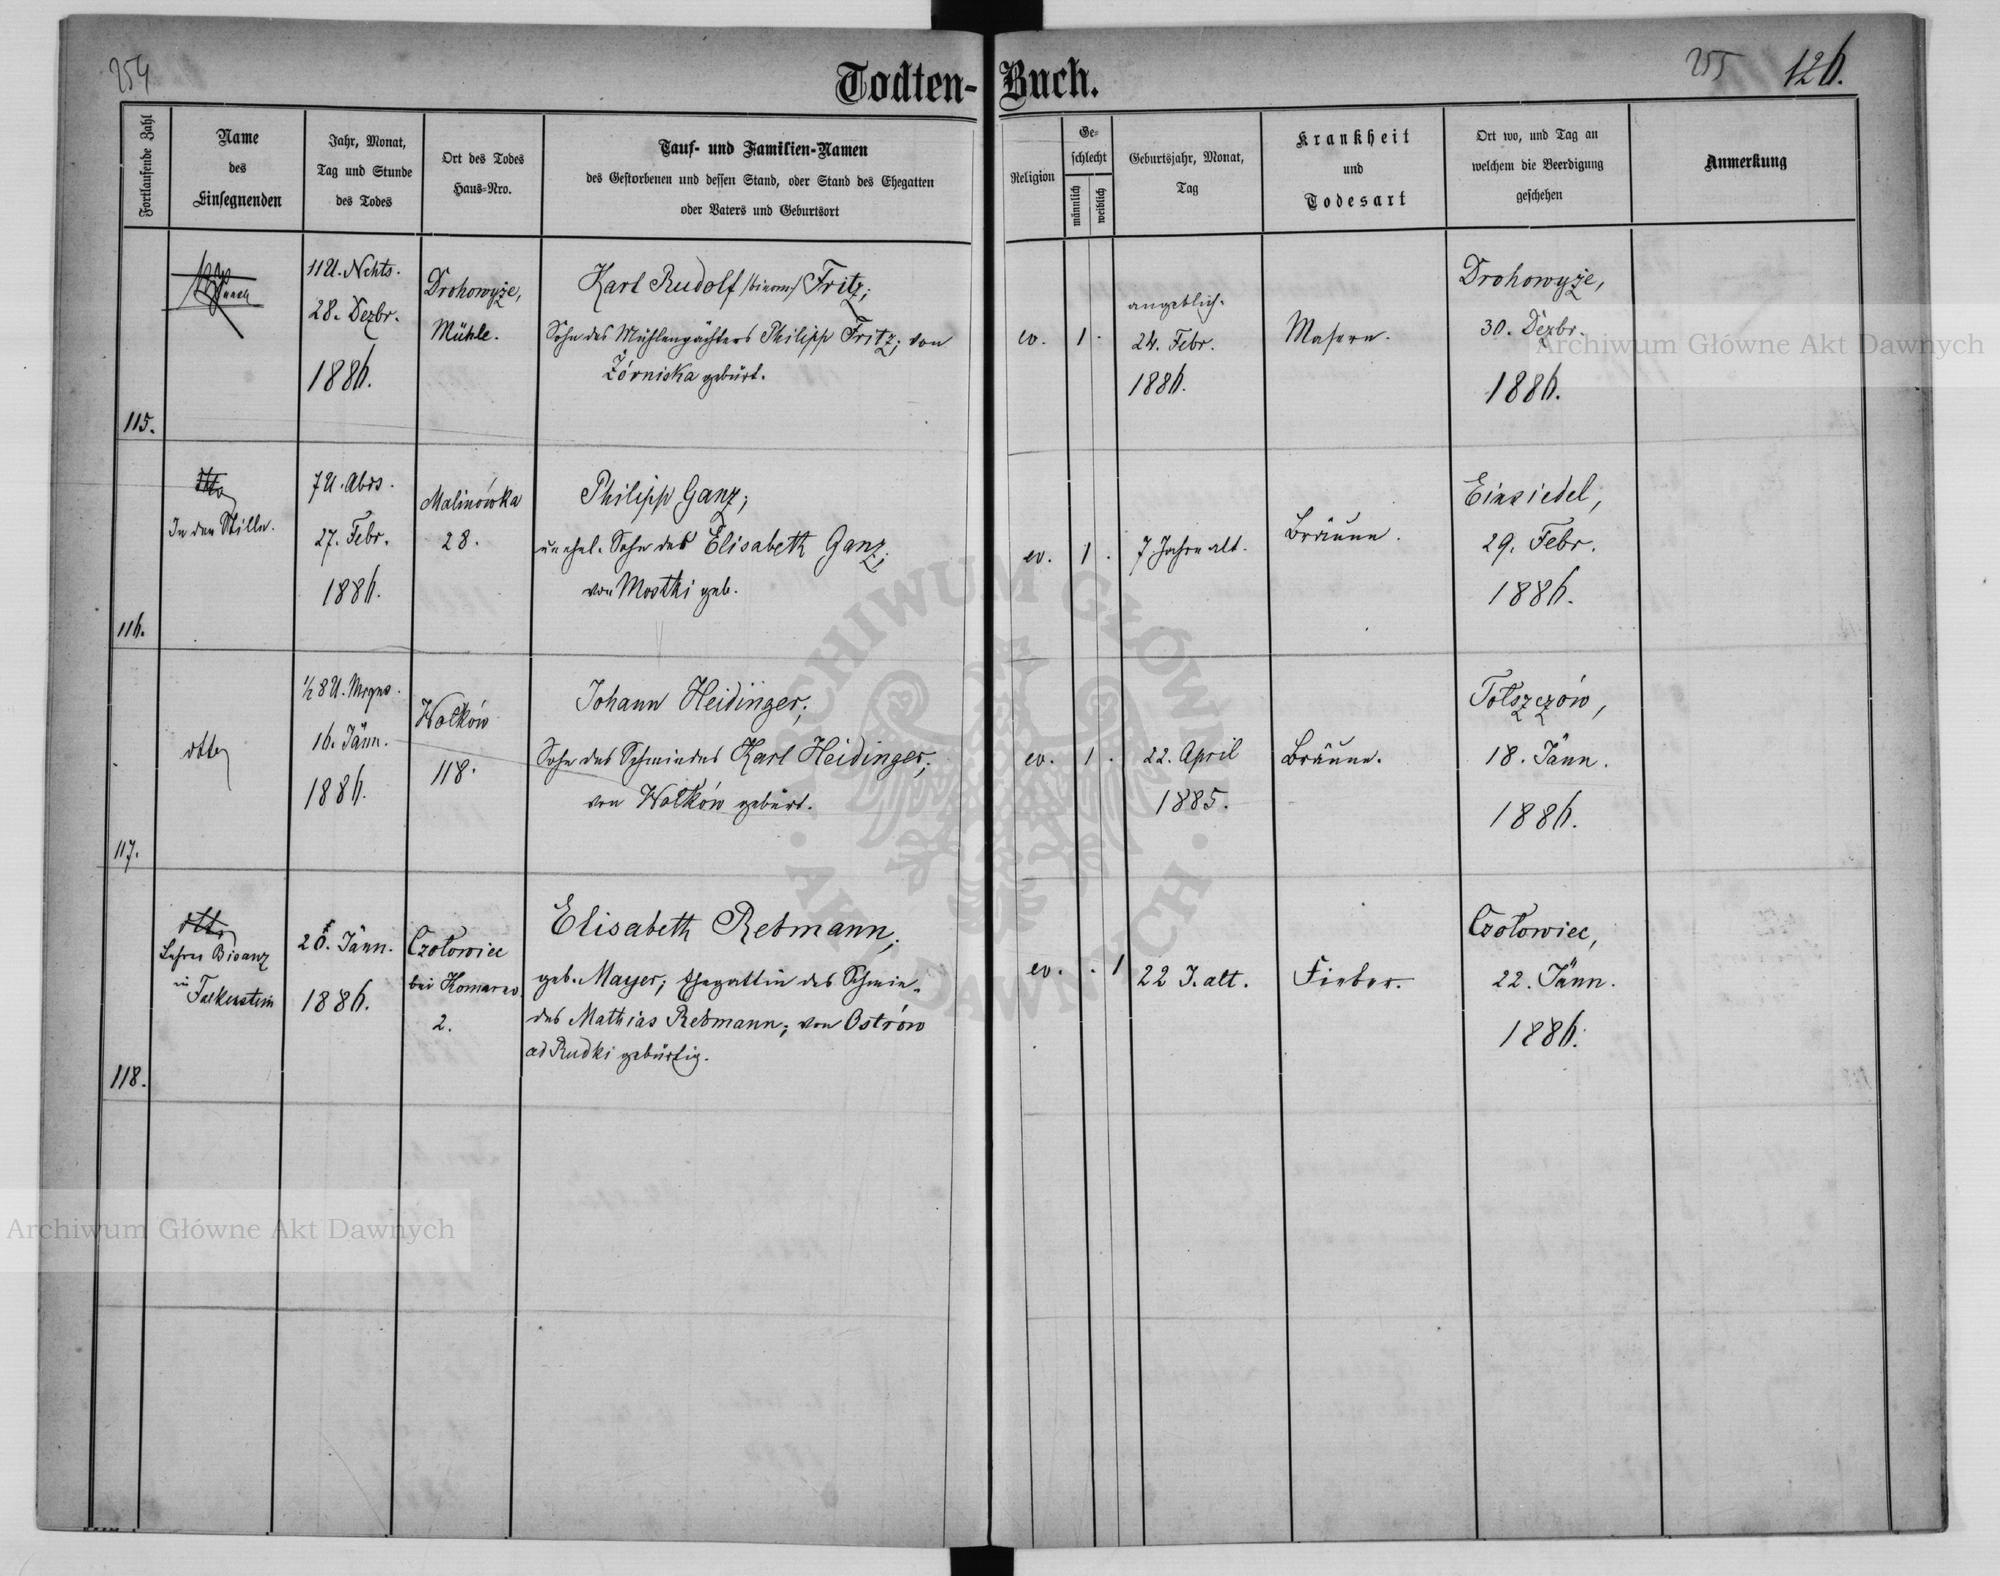 254
255 126.
Todten- Buch.
Fortlaufende Zahl
Name
des
Einsegnenden
Jahr, Monat,
Tag und Stunde
des Todes
Ort des Todes
Haus-Nro.
Tauf- und Familien-Namen
des Gestorbenen und dessen Stand, oder Stand des Ehegatten
oder Vaters und Geburtsort
Religion
Ge-
schlecht
männlich
weiblich
Geburtsjahr, Monat,
Tag
Krankheit
und
Todesart
Ort wo, und Tag an
welchem die Beerdigung
geschehen
Anmerkung
115.
11 U. Nchts.
28. Dezbr.
1886.
Drohowyże,
Mühle.
Karl Rudolf /binom/ Fritz;
Sohn des Mühlenpächters Philipp Fritz; von
Żórniska gebürt.
ev. 1 .
angeblich.
24. Febr.
1886.
Masern.
Drohowyże,
30. Dezbr.
1886.
116.
dtto
In der Stille.
7 U. Abds.
27. Febr.
1886.
Malinówka
28.
Philipp Ganz;
unehel. Sohn der Elisabeth Ganz,
von Mostki geb.
ev. 1 .
7 Jahre alt.
Bräune.
Einsiedel,
29. Febr.
1886.
117.
dtto
1/2 8 U. Mrgns.
16. Jänn.
1886.
Wołków
118.
Johann Heidinger;
Sohn des Schmiedes Karl Heidinger;
von Wołków gebürt.
ev. 1 .
22. April
1885.
Bräune.
Tołszczów,
18. Jänn.
1886.
118.
dtto
Lehrer Bisanz
in
Falkenstein
20. Jänn.
1886.
Czołowiec
bei Komarno
2.
Elisabeth Rebmann;
geb. Mayer; Ehegattin des Schmie-
des Mathias Rebmann; von Ostrów
ad Rudki gebürtig.
ev. . 1
22 J. alt.
Fieber.
Czołowiec,
22. Jänn.
1886.
Archiwum Główne Akt Dawnych
Archiwum Główne Akt Dawnych
ARCHIWUM GŁÓWNE · AKT DAWNYCH ·